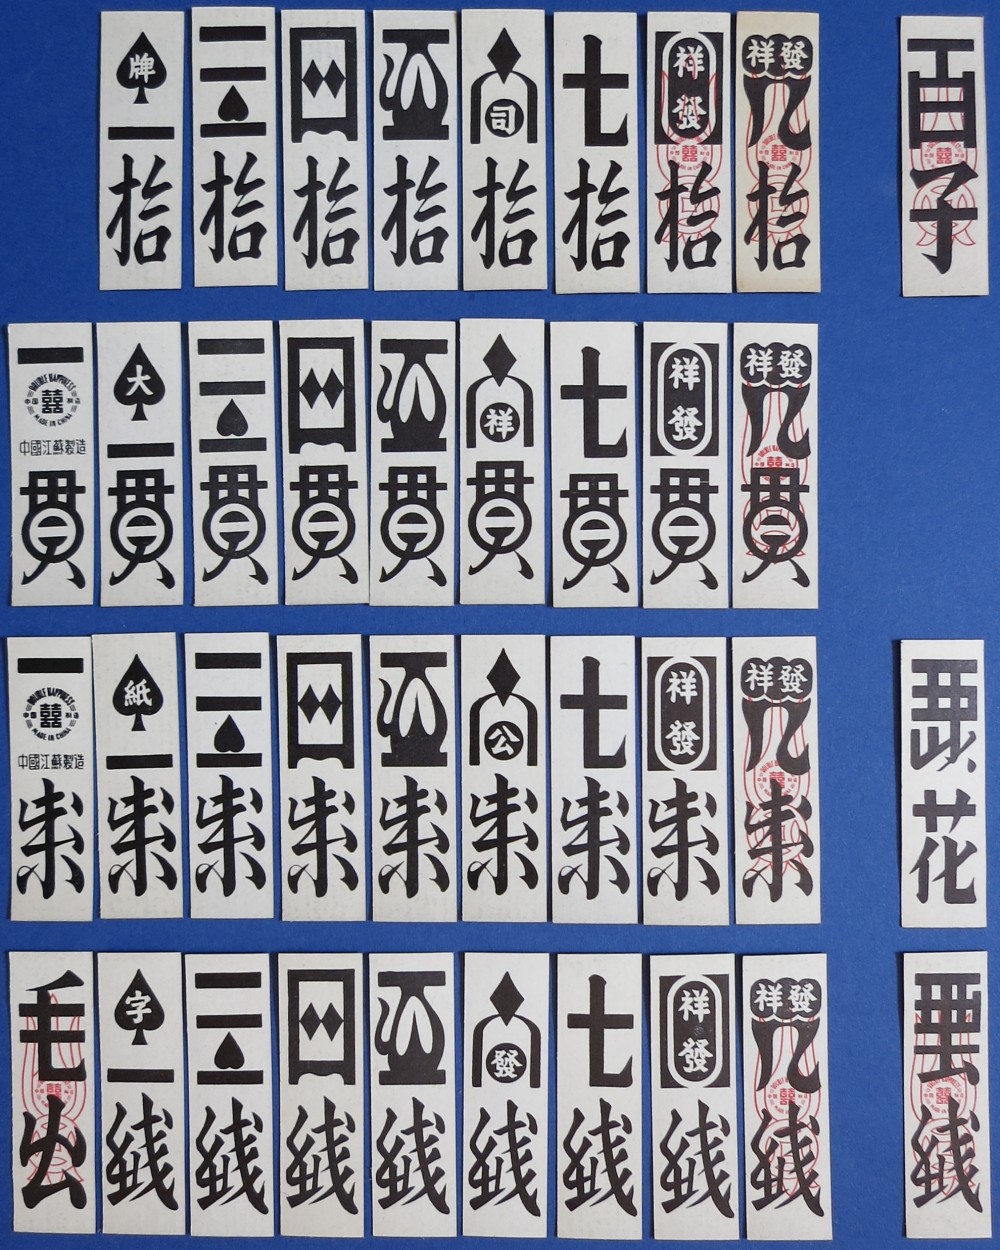 牌 二 拾
三 拾
四 拾
五 拾
六 司 拾
七 拾
祥發 八 拾
祥發 九 拾
百子
一 DOUBLE HAPPINESS 囍 中國製造 MADE IN CHINA 中國江蘇製造 貫
大 二 貫
三 貫
四 貫
五 貫
六 祥 貫
七 貫
祥發 八 貫
祥發 九 貫
一 DOUBLE HAPPINESS 囍 中國製造 MADE IN CHINA 中國江蘇製造 索
紙 二 索
三 索
四 索
五 索
六 公 索
七 索
祥發 八 索
祥發 九 索
花
毛公
字 二 錢
三 錢
四 錢
五 錢
六 發 錢
七 錢
祥發 八 錢
祥發 九 錢
錢